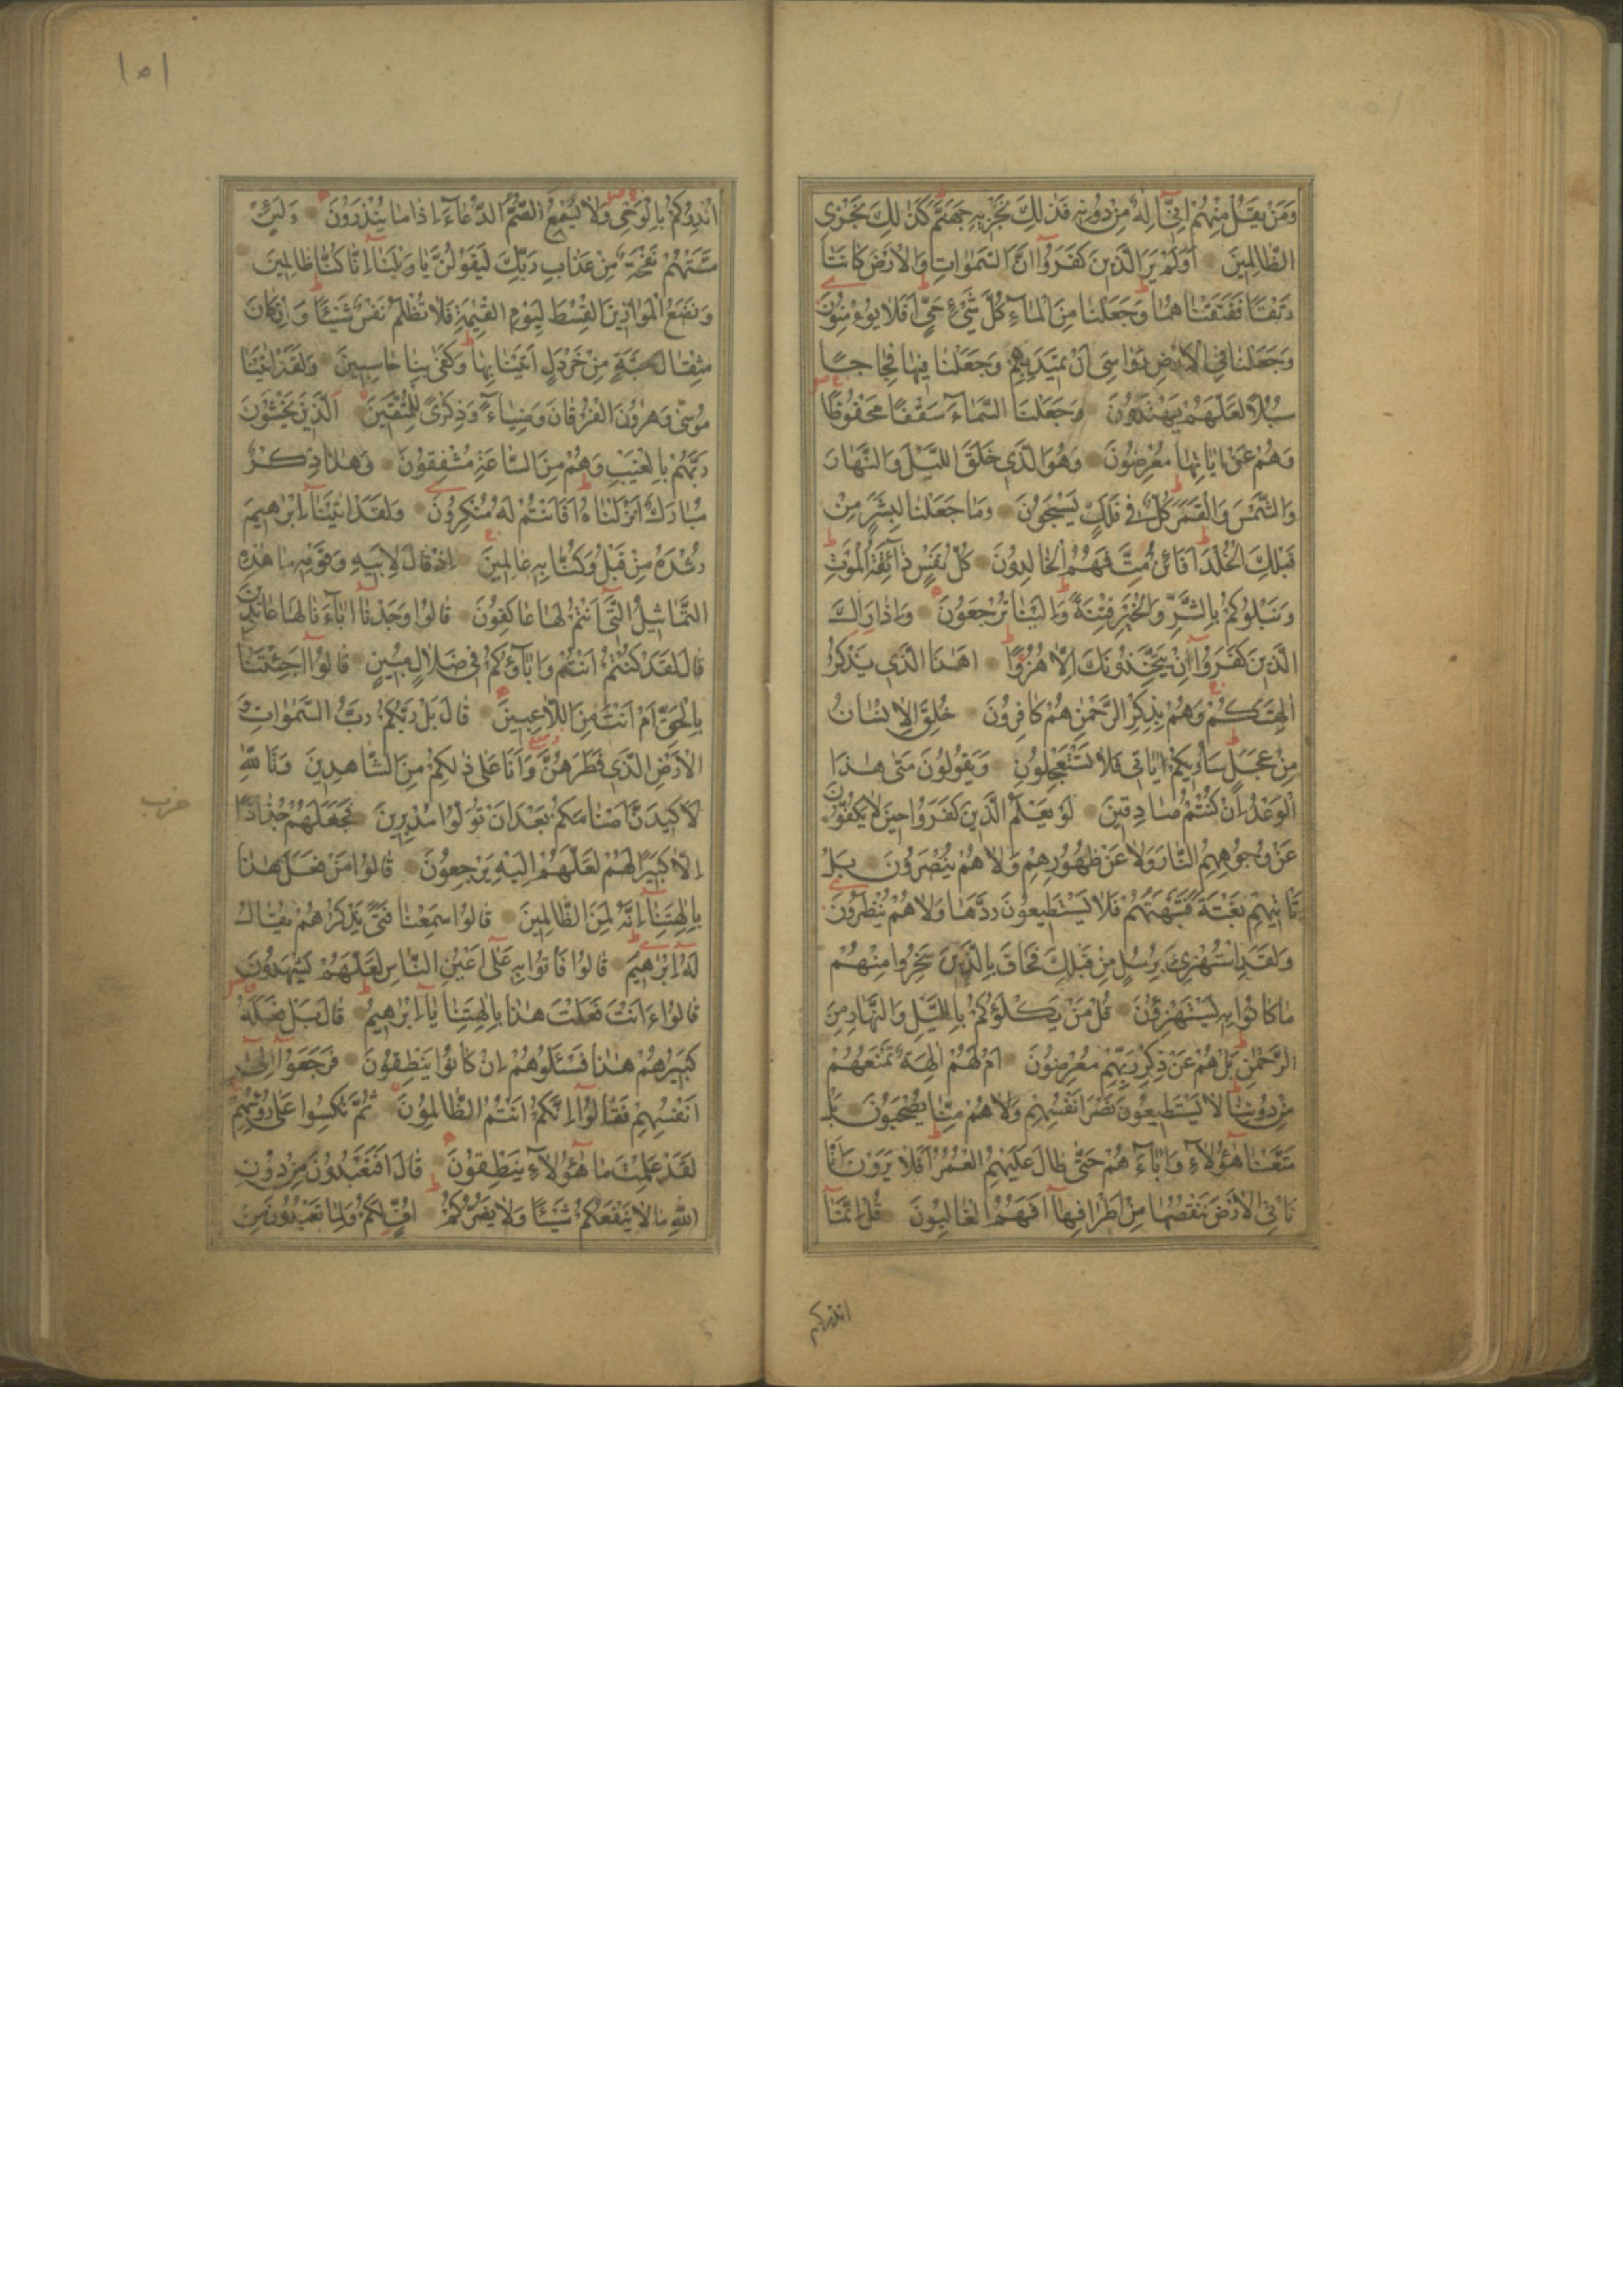 وَمَنْ يَقُلْ مِنْهُمْ اِنّٖٓى اِلٰهٌ مِنْ دُونِهٖ فَذٰلِكَ نَجْزٖيهِ جَهَنَّمَ كَذٰلِكَ نَجْزِى
الظَّالِمٖينَ اَوَلَمْ يَرَ الَّذٖينَ كَفَرُٓوا اَنَّ السَّمٰوَاتِ وَالْاَرْضَ كَانَتَا
رَتْقًا فَفَتَقْنَاهُمَا وَجَعَلْنَا مِنَ الْمَٓاءِ كُلَّ شَىْءٍ حَىٍّ اَفَلَا يُؤْمِنُونَ
وَجَعَلْنَا فِى الْاَرْضِ رَوَاسِىَ اَنْ تَمٖيدَ بِهِمْ وَجَعَلْنَا فٖيهَا فِجَاجًا
سُبُلًا لَعَلَّهُمْ يَهْتَدُونَ وَجَعَلْنَا السَّمَٓاءَ سَقْفًا مَحْفُوظًا
وَهُمْ عَنْ اٰيَاتِهَا مُعْرِضُونَ وَهُوَ الَّذٖى خَلَقَ الَّيْلَ وَالنَّهَارَ
وَالشَّمْسَ وَالْقَمَرَ كُلٌّ فٖى فَلَكٍ يَسْبَحُونَ وَمَا جَعَلْنَا لِبَشَرٍ مِنْ
قَبْلِكَ الْخُلْدَ اَفَائِنْ مِتَّ فَهُمُ الْخَالِدُونَ كُلُّ نَفْسٍ ذَٓائِقَةُ الْمَوْتِ
وَنَبْلُوكُمْ بِالشَّرِّ وَالْخَيْرِ فِتْنَةً وَاِلَيْنَا تُرْجَعُونَ وَاِذَا رَاٰكَ
الَّذٖينَ كَفَرُٓوا اِنْ يَتَّخِذُونَكَ اِلَّا هُزُوًا اَهٰذَا الَّذٖى يَذْكُرُ
اٰلِهَتَكُمْ وَهُمْ بِذِكْرِ الرَّحْمٰنِ هُمْ كَافِرُونَ خُلِقَ الْاِنْسَانُ
مِنْ عَجَلٍ سَاُرٖيكُمْ اٰيَاتٖى فَلَا تَسْتَعْجِلُونِ وَيَقُولُونَ مَتٰى هٰذَا
الْوَعْدُ اِنْ كُنْتُمْ صَادِقٖينَ لَوْ يَعْلَمُ الَّذٖينَ كَفَرُوا حٖينَ لَا يَكُفُّونَ
عَنْ وُجُوهِهِمُ النَّارَ وَلَا عَنْ ظُهُورِهِمْ وَلَا هُمْ يُنْصَرُونَ بَلْ
تَاْتٖيهِمْ بَغْتَةً فَتَبْهَتُهُمْ فَلَا يَسْتَطٖيعُونَ رَدَّهَا وَلَا هُمْ يُنْظَرُونَ
وَلَقَدِ اسْتُهْزِئَ بِرُسُلٍ مِنْ قَبْلِكَ فَحَاقَ بِالَّذٖينَ سَخِرُوا مِنْهُمْ
مَا كَانُوا بِهٖ يَسْتَهْزِؤُنَ قُلْ مَنْ يَكْلَؤُكُمْ بِالَّيْلِ وَالنَّهَارِ مِنَ
الرَّحْمٰنِ بَلْ هُمْ عَنْ ذِكْرِ رَبِّهِمْ مُعْرِضُونَ اَمْ لَهُمْ اٰلِهَةٌ تَمْنَعُهُمْ
مِنْ دُونِنَا لَا يَسْتَطٖيعُونَ نَصْرَ اَنْفُسِهِمْ وَلَا هُمْ مِنَّا يُصْحَبُونَ بَلْ
مَتَّعْنَا هٰٓؤُلَٓاءِ وَاٰبَٓاءَهُمْ حَتّٰى طَالَ عَلَيْهِمُ الْعُمُرُ اَفَلَا يَرَوْنَ اَنَّا
نَاْتِى الْاَرْضَ نَنْقُصُهَا مِنْ اَطْرَافِهَا اَفَهُمُ الْغَالِبُونَ قُلْ اِنَّمَٓا
انذركم
١٥١
اُنْذِرُكُمْ بِالْوَحْىِ وَلَا يَسْمَعُ الصُّمُّ الدُّعَٓاءَ اِذَا مَا يُنْذَرُونَ وَلَئِنْ
مَسَّتْهُمْ نَفْحَةٌ مِنْ عَذَابِ رَبِّكَ لَيَقُولُنَّ يَا وَيْلَنَٓا اِنَّا كُنَّا ظَالِمٖينَ
وَنَضَعُ الْمَوَازٖينَ الْقِسْطَ لِيَوْمِ الْقِيٰمَةِ فَلَا تُظْلَمُ نَفْسٌ شَيْئًا وَاِنْ كَانَ
مِثْقَالَ حَبَّةٍ مِنْ خَرْدَلٍ اَتَيْنَا بِهَا وَكَفٰى بِنَا حَاسِبٖينَ وَلَقَدْ اٰتَيْنَا
مُوسٰى وَهٰرُونَ الْفُرْقَانَ وَضِيَٓاءً وَذِكْرًى لِلْمُتَّقٖينَ اَلَّذٖينَ يَخْشَوْنَ
رَبَّهُمْ بِالْغَيْبِ وَهُمْ مِنَ السَّاعَةِ مُشْفِقُونَ وَهٰذَا ذِكْرٌ
مُبَارَكٌ اَنْزَلْنَاهُ اَفَاَنْتُمْ لَهُ مُنْكِرُونَ وَلَقَدْ اٰتَيْنَٓا اِبْرٰهٖيمَ
رُشْدَهُ مِنْ قَبْلُ وَكُنَّا بِهٖ عَالِمٖينَ اِذْ قَالَ لِاَبٖيهِ وَقَوْمِهٖ مَا هٰذِهِ
التَّمَاثٖيلُ الَّتٖٓى اَنْتُمْ لَهَا عَاكِفُونَ قَالُوا وَجَدْنَٓا اٰبَٓاءَنَا لَهَا عَابِدٖينَ
قَالَ لَقَدْ كُنْتُمْ اَنْتُمْ وَاٰبَٓاؤُكُمْ فٖى ضَلَالٍ مُبٖينٍ قَالُٓوا اَجِئْتَنَا
بِالْحَقِّ اَمْ اَنْتَ مِنَ اللَّاعِبٖينَ قَالَ بَلْ رَبُّكُمْ رَبُّ السَّمٰوَاتِ وَ
الْاَرْضِ الَّذٖى فَطَرَهُنَّ وَاَنَا عَلٰى ذٰلِكُمْ مِنَ الشَّاهِدٖينَ وَتَاللّٰهِ
لَاَكٖيدَنَّ اَصْنَامَكُمْ بَعْدَ اَنْ تُوَلُّوا مُدْبِرٖينَ فَجَعَلَهُمْ جُذَاذًا
حزب
اِلَّا كَبٖيرًا لَهُمْ لَعَلَّهُمْ اِلَيْهِ يَرْجِعُونَ قَالُوا مَنْ فَعَلَ هٰذَا
بِاٰلِهَتِنَٓا اِنَّهُ لَمِنَ الظَّالِمٖينَ قَالُوا سَمِعْنَا فَتًى يَذْكُرُهُمْ يُقَالُ
لَهُٓ اِبْرٰهٖيمُ قَالُوا فَاْتُوا بِهٖ عَلٰٓى اَعْيُنِ النَّاسِ لَعَلَّهُمْ يَشْهَدُونَ
قَالُٓوا ءَاَنْتَ فَعَلْتَ هٰذَا بِاٰلِهَتِنَا يَٓا اِبْرٰهٖيمُ قَالَ بَلْ فَعَلَهُ
كَبٖيرُهُمْ هٰذَا فَسْئَلُوهُمْ اِنْ كَانُوا يَنْطِقُونَ فَرَجَعُٓوا اِلٰٓى
اَنْفُسِهِمْ فَقَالُٓوا اِنَّكُمْ اَنْتُمُ الظَّالِمُونَ ثُمَّ نُكِسُوا عَلٰى رُؤُسِهِمْ
لَقَدْ عَلِمْتَ مَا هٰٓؤُلَٓاءِ يَنْطِقُونَ قَالَ اَفَتَعْبُدُونَ مِنْ دُونِ
اللّٰهِ مَا لَا يَنْفَعُكُمْ شَيْئًا وَلَا يَضُرُّكُمْ اُفٍّ لَكُمْ وَلِمَا تَعْبُدُونَ مِنْ